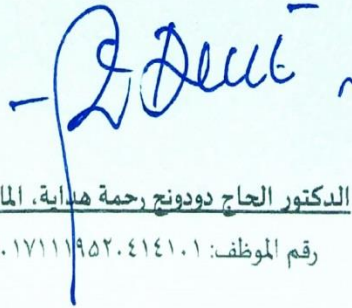 الدكتور الحاج دودونج رحمة هداية، الما
رقم الموظف: ٠١٧١١١٩٥٢٠٤١٤١٠١